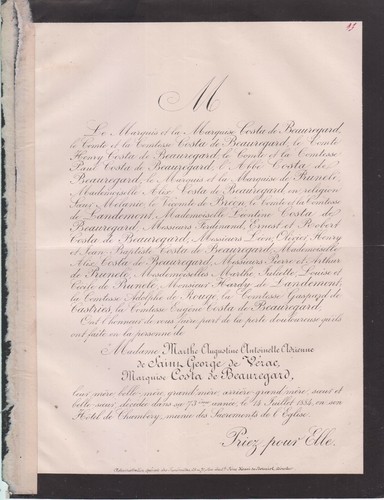 15
M
Le Marquis et la Marquise Costa de Beauregard,
le Comte et la Comtesse Costa de Beauregard, le Comte
Henry Costa de Beauregard, le Comte et la Comtesse
Paul Costa de Beauregard, l'Abbé Costa de
Beauregard, le Marquis et la Marquise de Prunelé,
Mademoiselle Alix Costa de Beauregard en religion
Sœur Mélanie, le Vicomte de Bréon, le Comte et la Comtesse
de Landemont, Mademoiselle Léontine Costa de
Beauregard, Messieurs Ferdinand, Ernest et Robert
Costa de Beauregard, Messieurs Léon, Olivier, Henry
et Jean-Baptiste Costa de Beauregard, Mademoiselle
Alix Costa de Beauregard, Messieurs Pierre et Arthur
de Prunelé, Mesdemoiselles Marthe, Juliette, Louise et
Cécile de Prunelé, Monsieur Hardÿ de Landemont,
la Comtesse Adolphe de Rougé, la Comtesse Gaspard de
Castries, la Comtesse Eugène Costa de Beauregard,
Ont l'honneur de vous faire part de la perte douloureuse qu'ils
ont faite en la personne de
Madame Marthe Augustine Antoinette Adrienne
de Saint George de Vérac,
Marquise Costa de Beauregard,
leur mère, belle-mère, grand'mère, arrière-grand'mère, sœur et
belle-sœur, décédée dans sa année, le 14 Juillet 1884, en son
Hôtel de Chambéry, munie des Sacrements de l'Eglise.
Priez pour Elle.